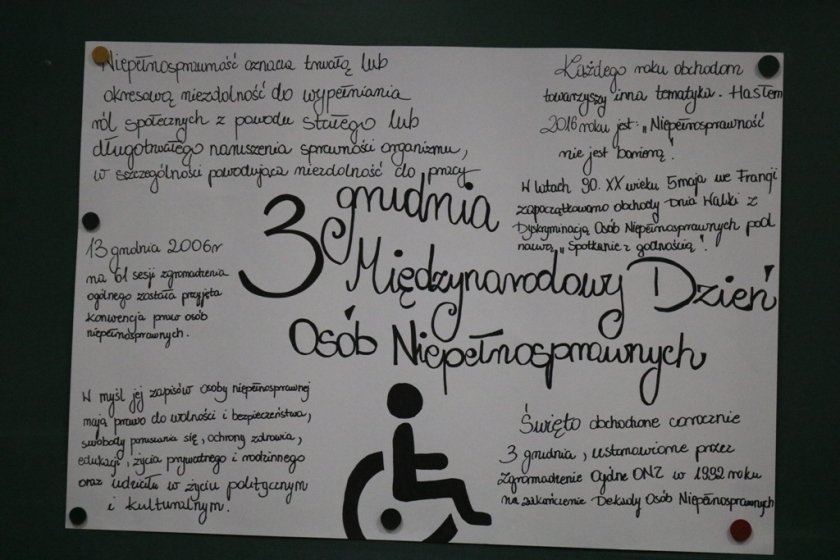 Niepełnosprawność oznacza trwałą lub
okresową niezdolność do wypełniania
ról społecznych z powodu stałego lub
długotrwałego naruszenia sprawności organizmu,
w szczególności powodująca niezdolność do pracy
Każdego roku obchodom
towarzyszy inna tematyka. Hasłem
2016 roku jest: „Niepełnosprawność
nie jest barierą".
W latach 90. XX wieku 5 maja we Francji
zapoczątkowano obchody Dnia Walki z
Dyskryminacją Osób Niepełnosprawnych pod
nazwą „Spotkanie z godnością".
3 grudnia
Międzynarodowy Dzień
Osób Niepełnosprawnych
13 grudnia 2006r
na 61 sesji zgromadzenia
ogólnego została przyjęta
konwencja praw osób
niepełnosprawnych.
W myśl jej zapisów osoby niepełnosprawnej
mają prawo do wolności i bezpieczeństwa,
swobody poruszania się, ochrony zdrowia,
edukacji, życia prywatnego i rodzinnego
oraz udziału w życiu politycznym
i kulturalnym.
Święto obchodzone corocznie
3 grudnia, ustanowione przez
Zgromadzenie Ogólne ONZ w 1992 roku
na zakończenie Dekady Osób Niepełnosprawnych